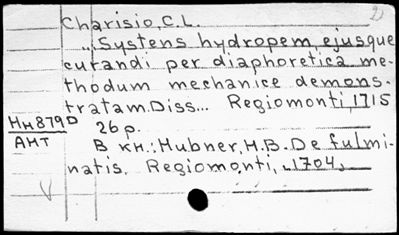 Charisio, C.L.
2)
„Systens hydropem, ejusque
curandi per diaphoretica me-
thodum mechanice demons-
tratam. Diss... Regiomonti, 1715
Нм879D
26 p.
АНТ
В кн.: Hubner, H.B. De fulmi-
natis. Regiomonti, „1704„
V